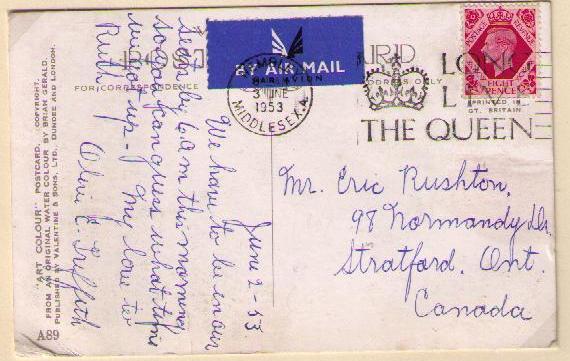 "ART COLOUR" POSTCARD. COPYRIGHT.
FROM AN ORIGINAL WATER COLOUR BY BRIAN GERALD.
PUBLISHED BY VALENTINE & SONS, LTD. DUNDEE AND LONDON.
A89
FOR CORRESPONDENCE
BY AIR MAIL
PAR AVION
3 JUNE
1953
MIDDLESEX.A
ADDRESS ONLY
LONG
LIVE
THE QUEEN
EIGHT
PENCE
PRINTED IN
GT. BRITAIN
June 2-53.
We have to be in our
seats by 6 a.m this morning
so you can guess what time
we're up - My love to
Ruth
Olive E. Griffith
Mr. Eric Rushton,
98 Normandy Dr.
Stratford. Ont.
Canada